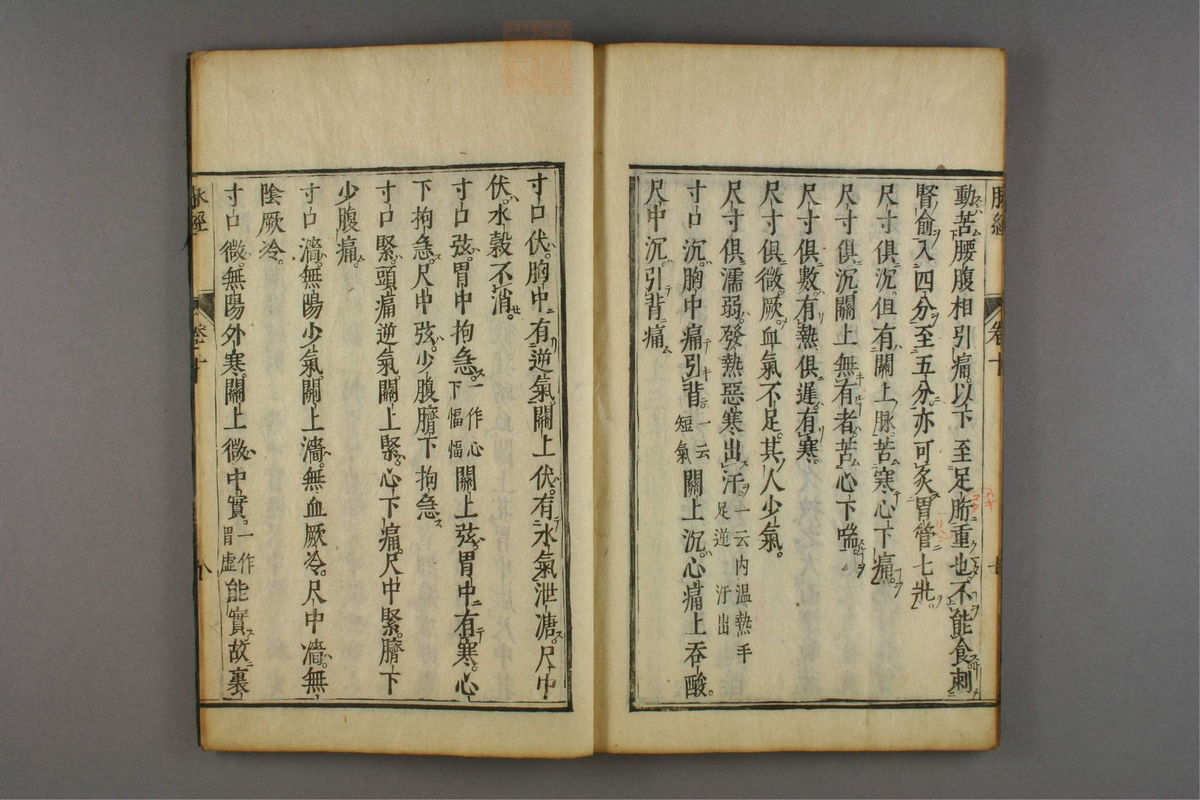 脉經 卷十 七
動苦腰腹相引痛以下至足胻重也不能食刺
腎俞入四分至五分亦可灸胃管七壯
尺寸俱沉但有關上脉苦寒心下痛
尺寸俱沉關上無有者苦心下喘
尺寸俱數有熱俱遲有寒
尺寸俱微厥血氣不足其人少氣
尺寸俱濡弱發熱惡寒出汗一云内温熱手足逆汗出
寸口沉胸中痛引背一云短氣關上沉心痛上吞酸
尺中沉引背痛
寸口伏胸中有逆氣關上伏有水氣泄溏尺中
伏水穀不消
寸口弦胃中拘急一作心下愊愊關上弦胃中有寒心
下拘急尺中弦少腹臍下拘急
寸口緊頭痛逆氣關上緊心下痛尺中緊臍下
少腹痛
寸口濇無陽少氣關上濇無血厥冷尺中濇無
陰厥冷
寸口微無陽外寒關上微中實一作胃虛能實故裏
脉經 卷十 八